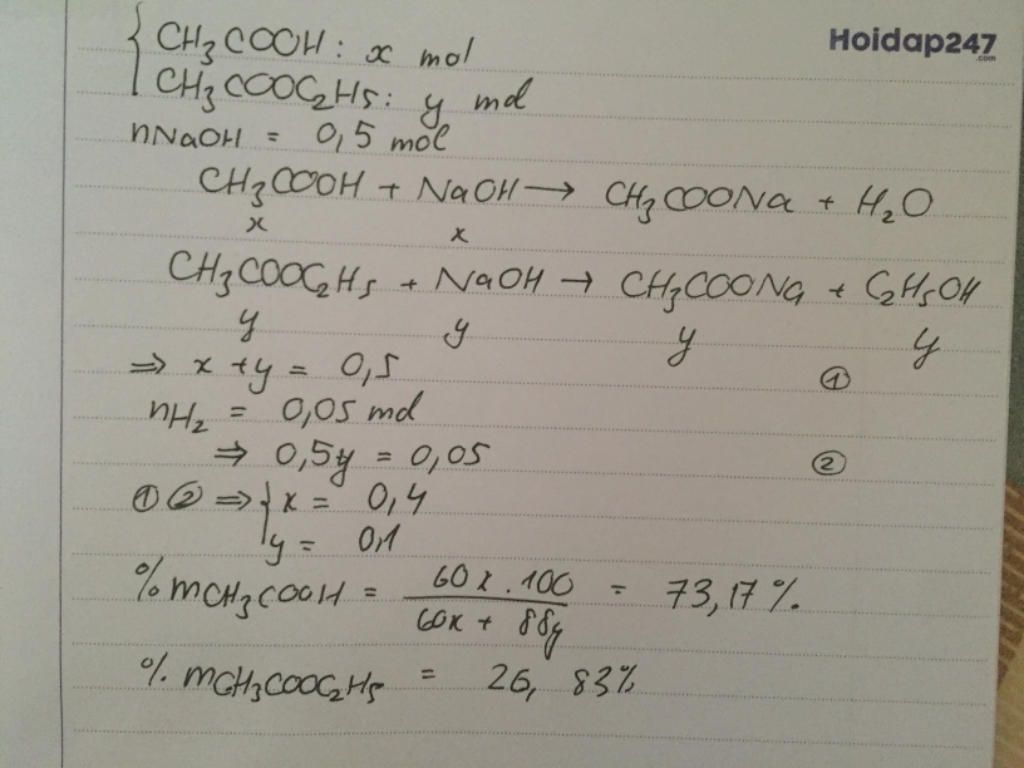 Hoidap247
.com
{ CH3COOH: x mol
CH3COOC2H5: y mol
nNaOH = 0,5 mol
CH3COOH + NaOH → CH3COONa + H2O
x x
CH3COOC2H5 + NaOH → CH3COONa + C2H5OH
y y y y
⇒ x + y = 0,5 ①
nH2 = 0,05 mol
⇒ 0,5y = 0,05 ②
① ② ⇒ { x = 0,4
y = 0,1
% mCH3COOH = 60x . 100 / 60x + 88y = 73,17 %.
% mCH3COOC2H5 = 26, 83%